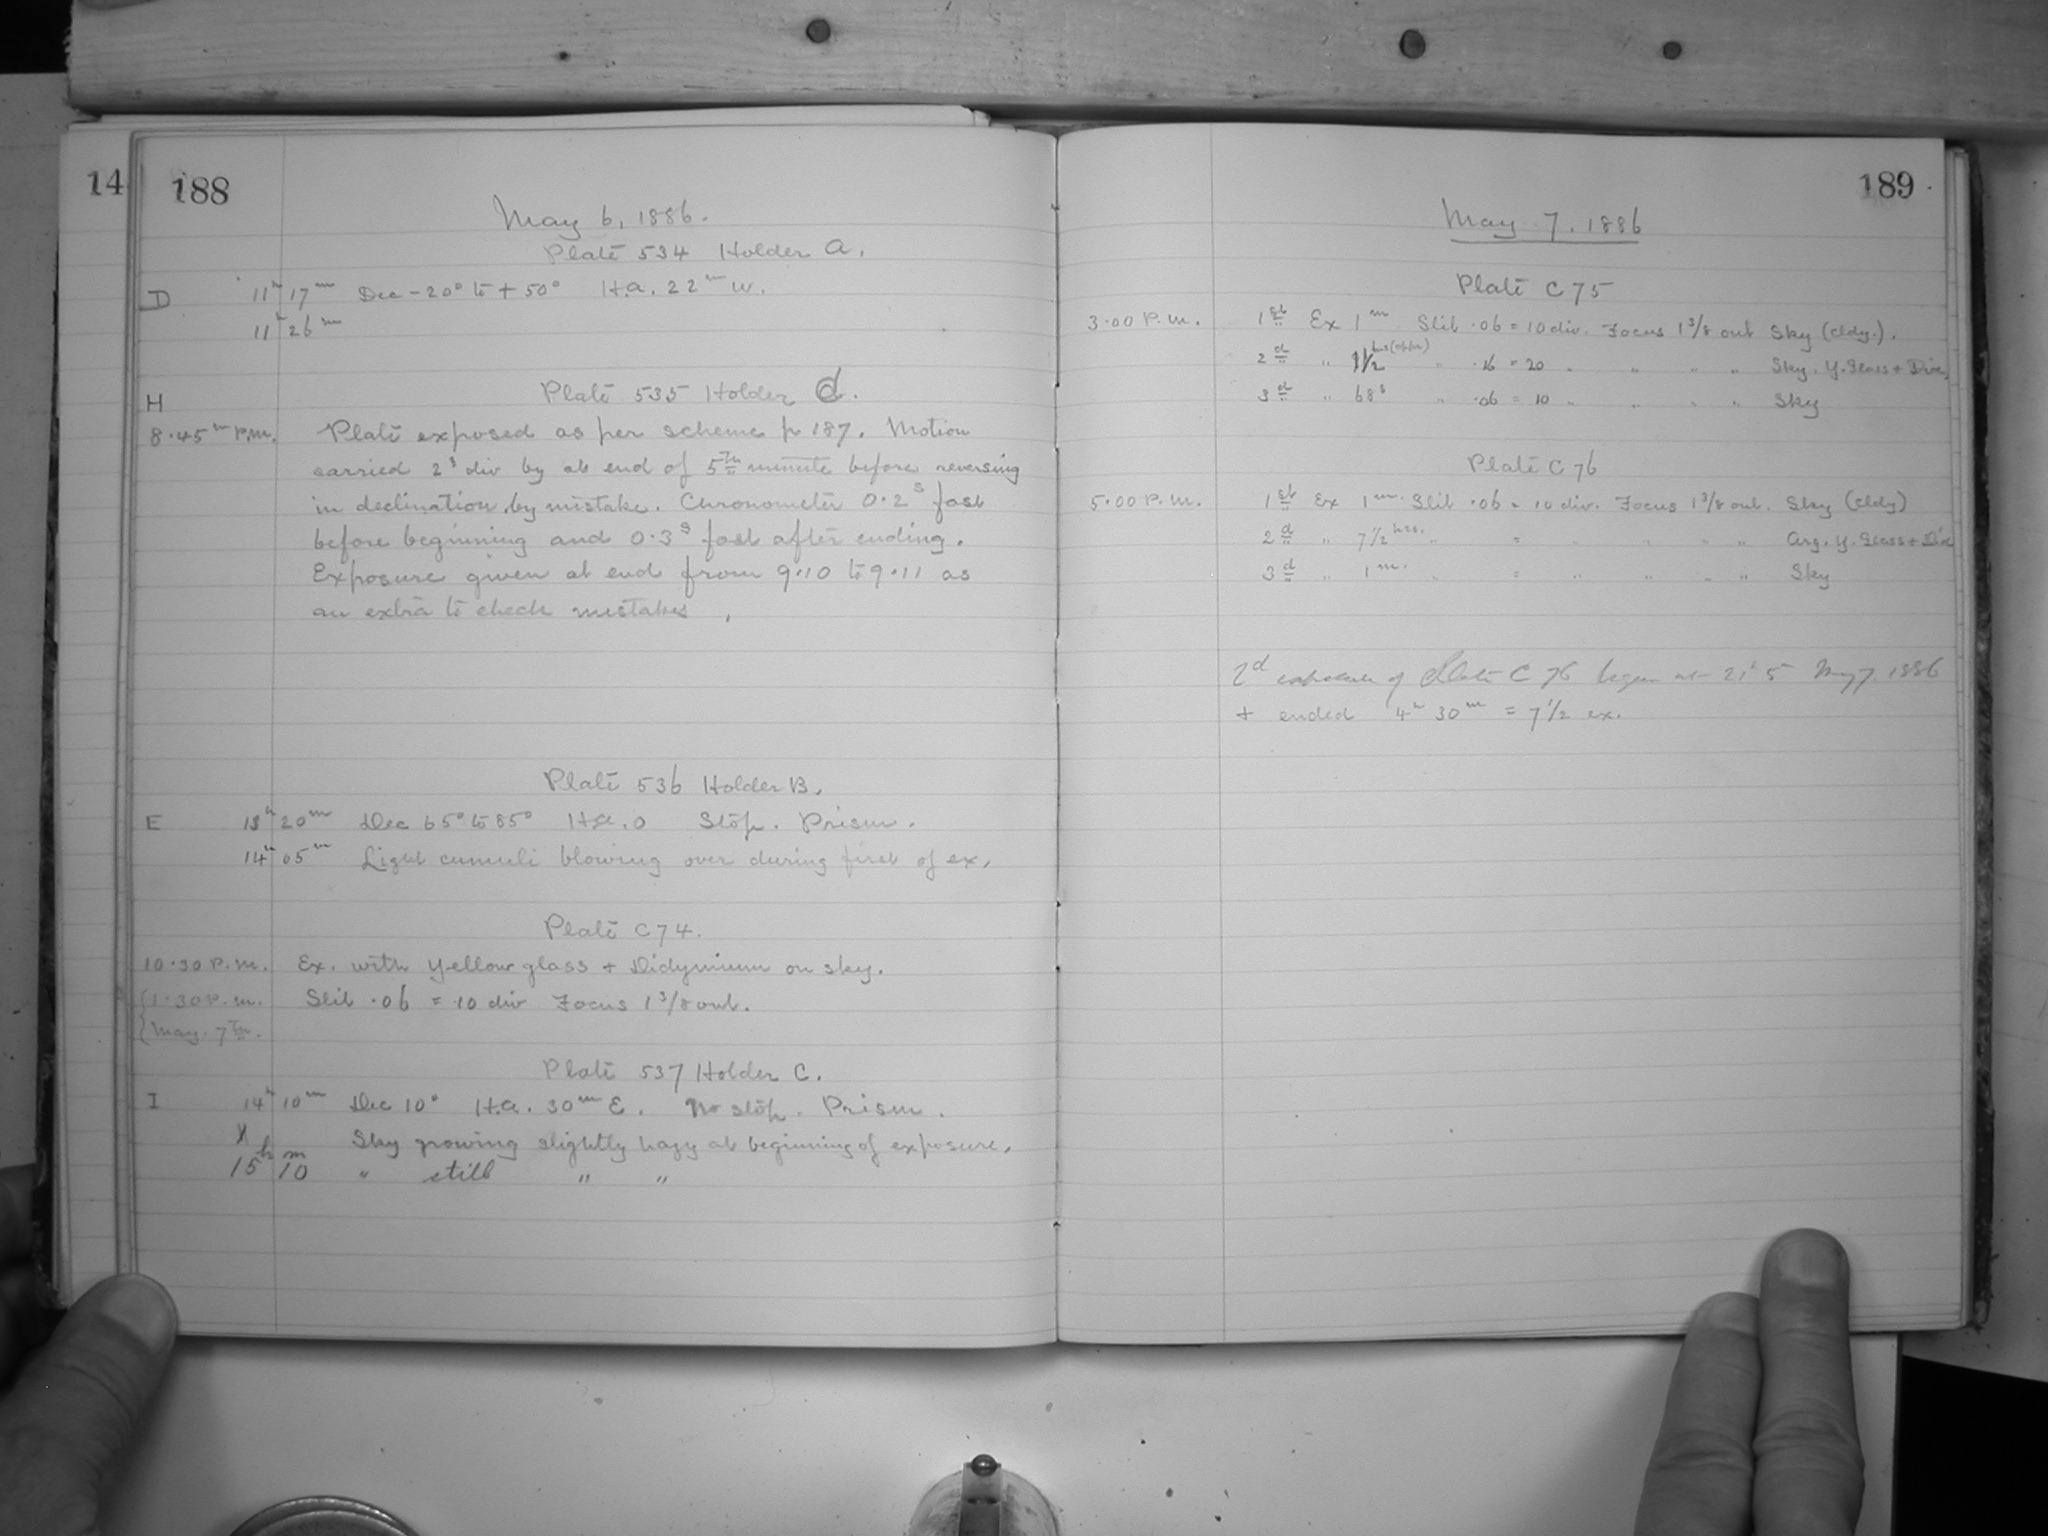 14
188
May 6, 1886.
Plate 534 Holder A.
D 11h 17m Dec -20° to +50° H.a. 22m W.
11h 26m
H Plate 535 Holder d.
8.45m P.M. Plate exposed as per scheme p 187. Motion
carried 2s div by at end of 5th minute before reversing
in declination by mistake. Chronometer 0.2s fast
before beginning and 0.3s fast after ending.
Exposure given at end from 9.10 to 9.11 as
an extra to check mistakes.
Plate 536 Holder B.
E 13h 20m Dec 65° to 85° H.a. 0 Stop. Prism.
14h 05m Light cumuli blowing over during first of ex.
Plate C 74.
10.30 P.M. Ex. with yellow glass + Didymium on sky.
1.30 P.m. Slit .06 = 10 div Focus 1 3/8 out.
May. 7th.
Plate 537 Holder C.
I 14h 10m Dec 10° H.a. 30m E. No stop. Prism.
Sky growing slightly hazy at beginning of exposure.
15h 10m " still " "
189
May 7, 1886
Plate C 75
3.00 P.m. 1st Ex 1m Slit .06 = 10 div. Focus 1 3/8 out Sky (cldy.).
2d " 1/2 " .16 = 20 " " " " Sky. Y. Glass + Did.
3d " 68s " .06 = 10 " " " " Sky
Plate C 76
5.00 P.m. 1st Ex 1m. Slit .06 = 10 div. Focus 1 3/8 out. Sky (cldy)
2d " 7 1/2 hrs. " = " " " " Arg. Y. Glass + Did
3d " 1m. " = " " " " Sky
2d exposure of Plate C 76 began at 21h 5 May 7 1886
+ ended 4h 30m = 7 1/2 ex.